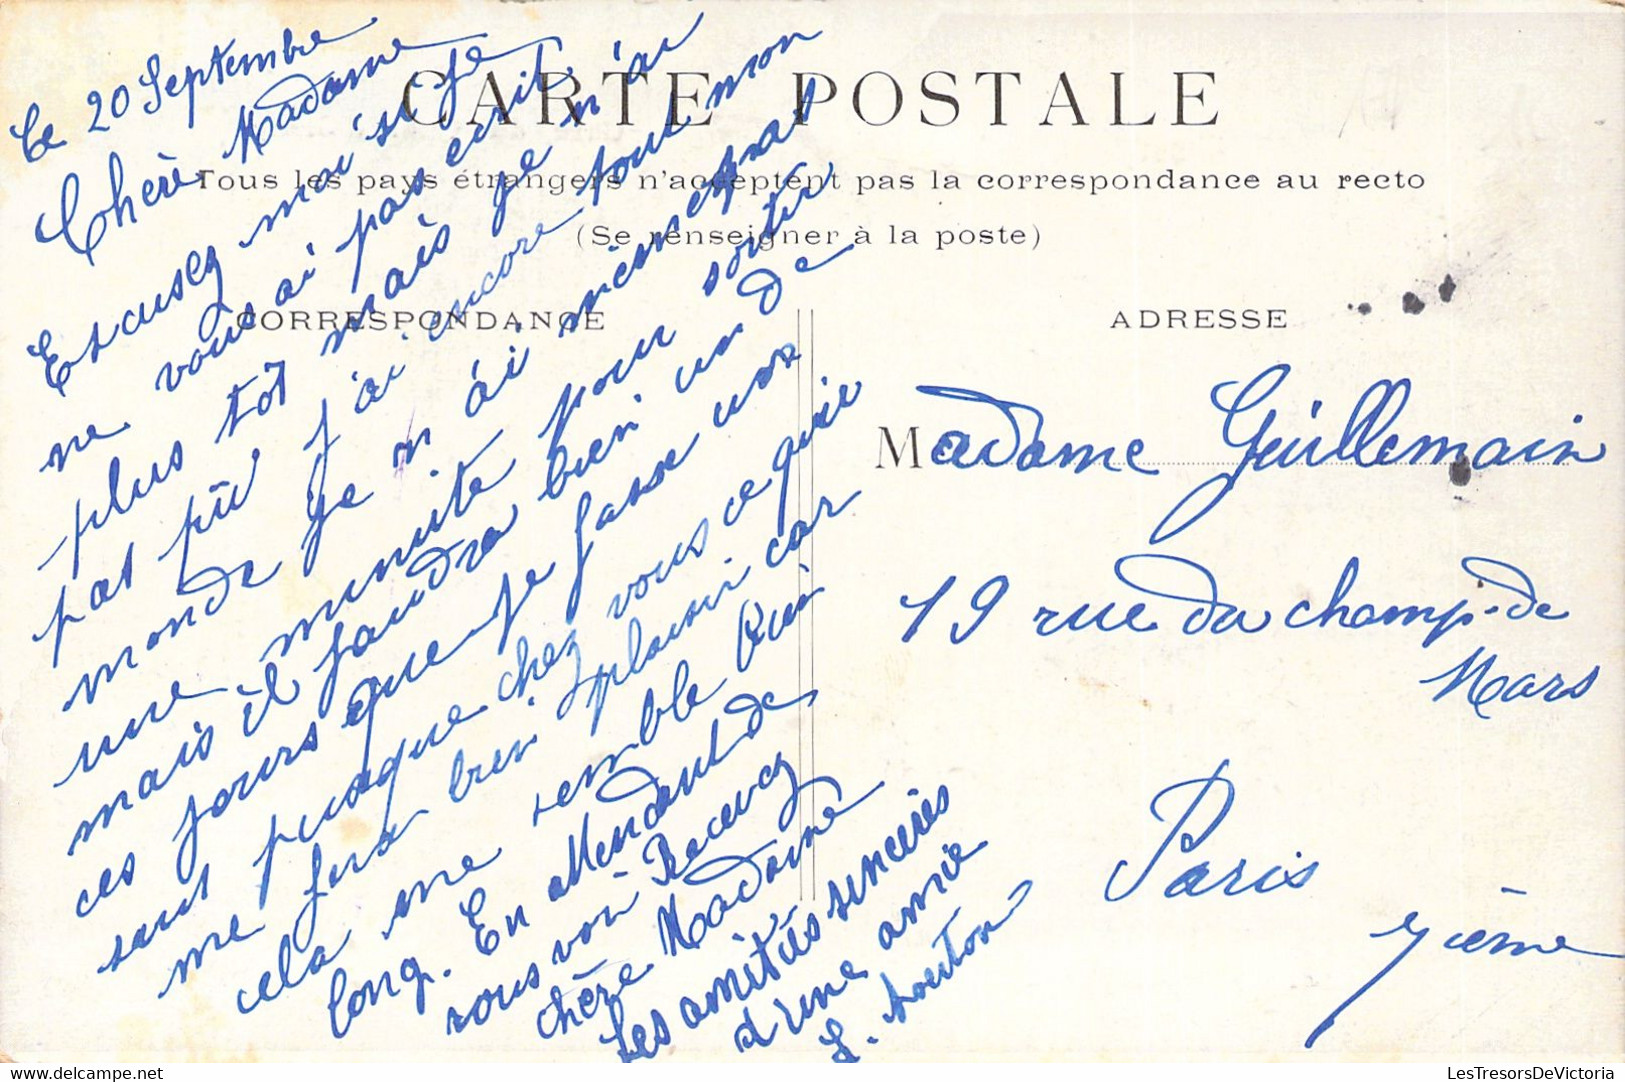 CARTE POSTALE
Tous les pays étrangers n'acceptent pas la correspondance au recto
(Se renseigner à la poste)
CORRESPONDANCE
Ce 20 Septembre
Chère Madame
Escusez moi si je
ne vous ai pas écrit
plus tôt mais je n'ai
pas pû j'ai encore tout mon
monde je n'ai même pas
une minuite pour sortir
mais il faudra bien un de
ces jours que je fasse un
saut jusque chez vous ce qui
me fera bien plaisir car
cela me semble
long. En attendant de
vous voir Recevez
chère Madame
Les amitiés sincères
d'une amie
ADRESSE
Madame Guillemain
19 rue du champ-de
Mars
Paris
7ième
LesTresorsDeVictoria
delcampe.net